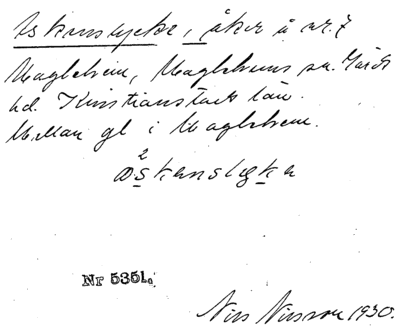 Askanslycke, åker å nr. 7
Maglehem, Maglehems sn. Gärds
hd. Kristianstads län.
Mellan gl i Maglehem.
Nr 5351.
Nils Nilsson 1930.